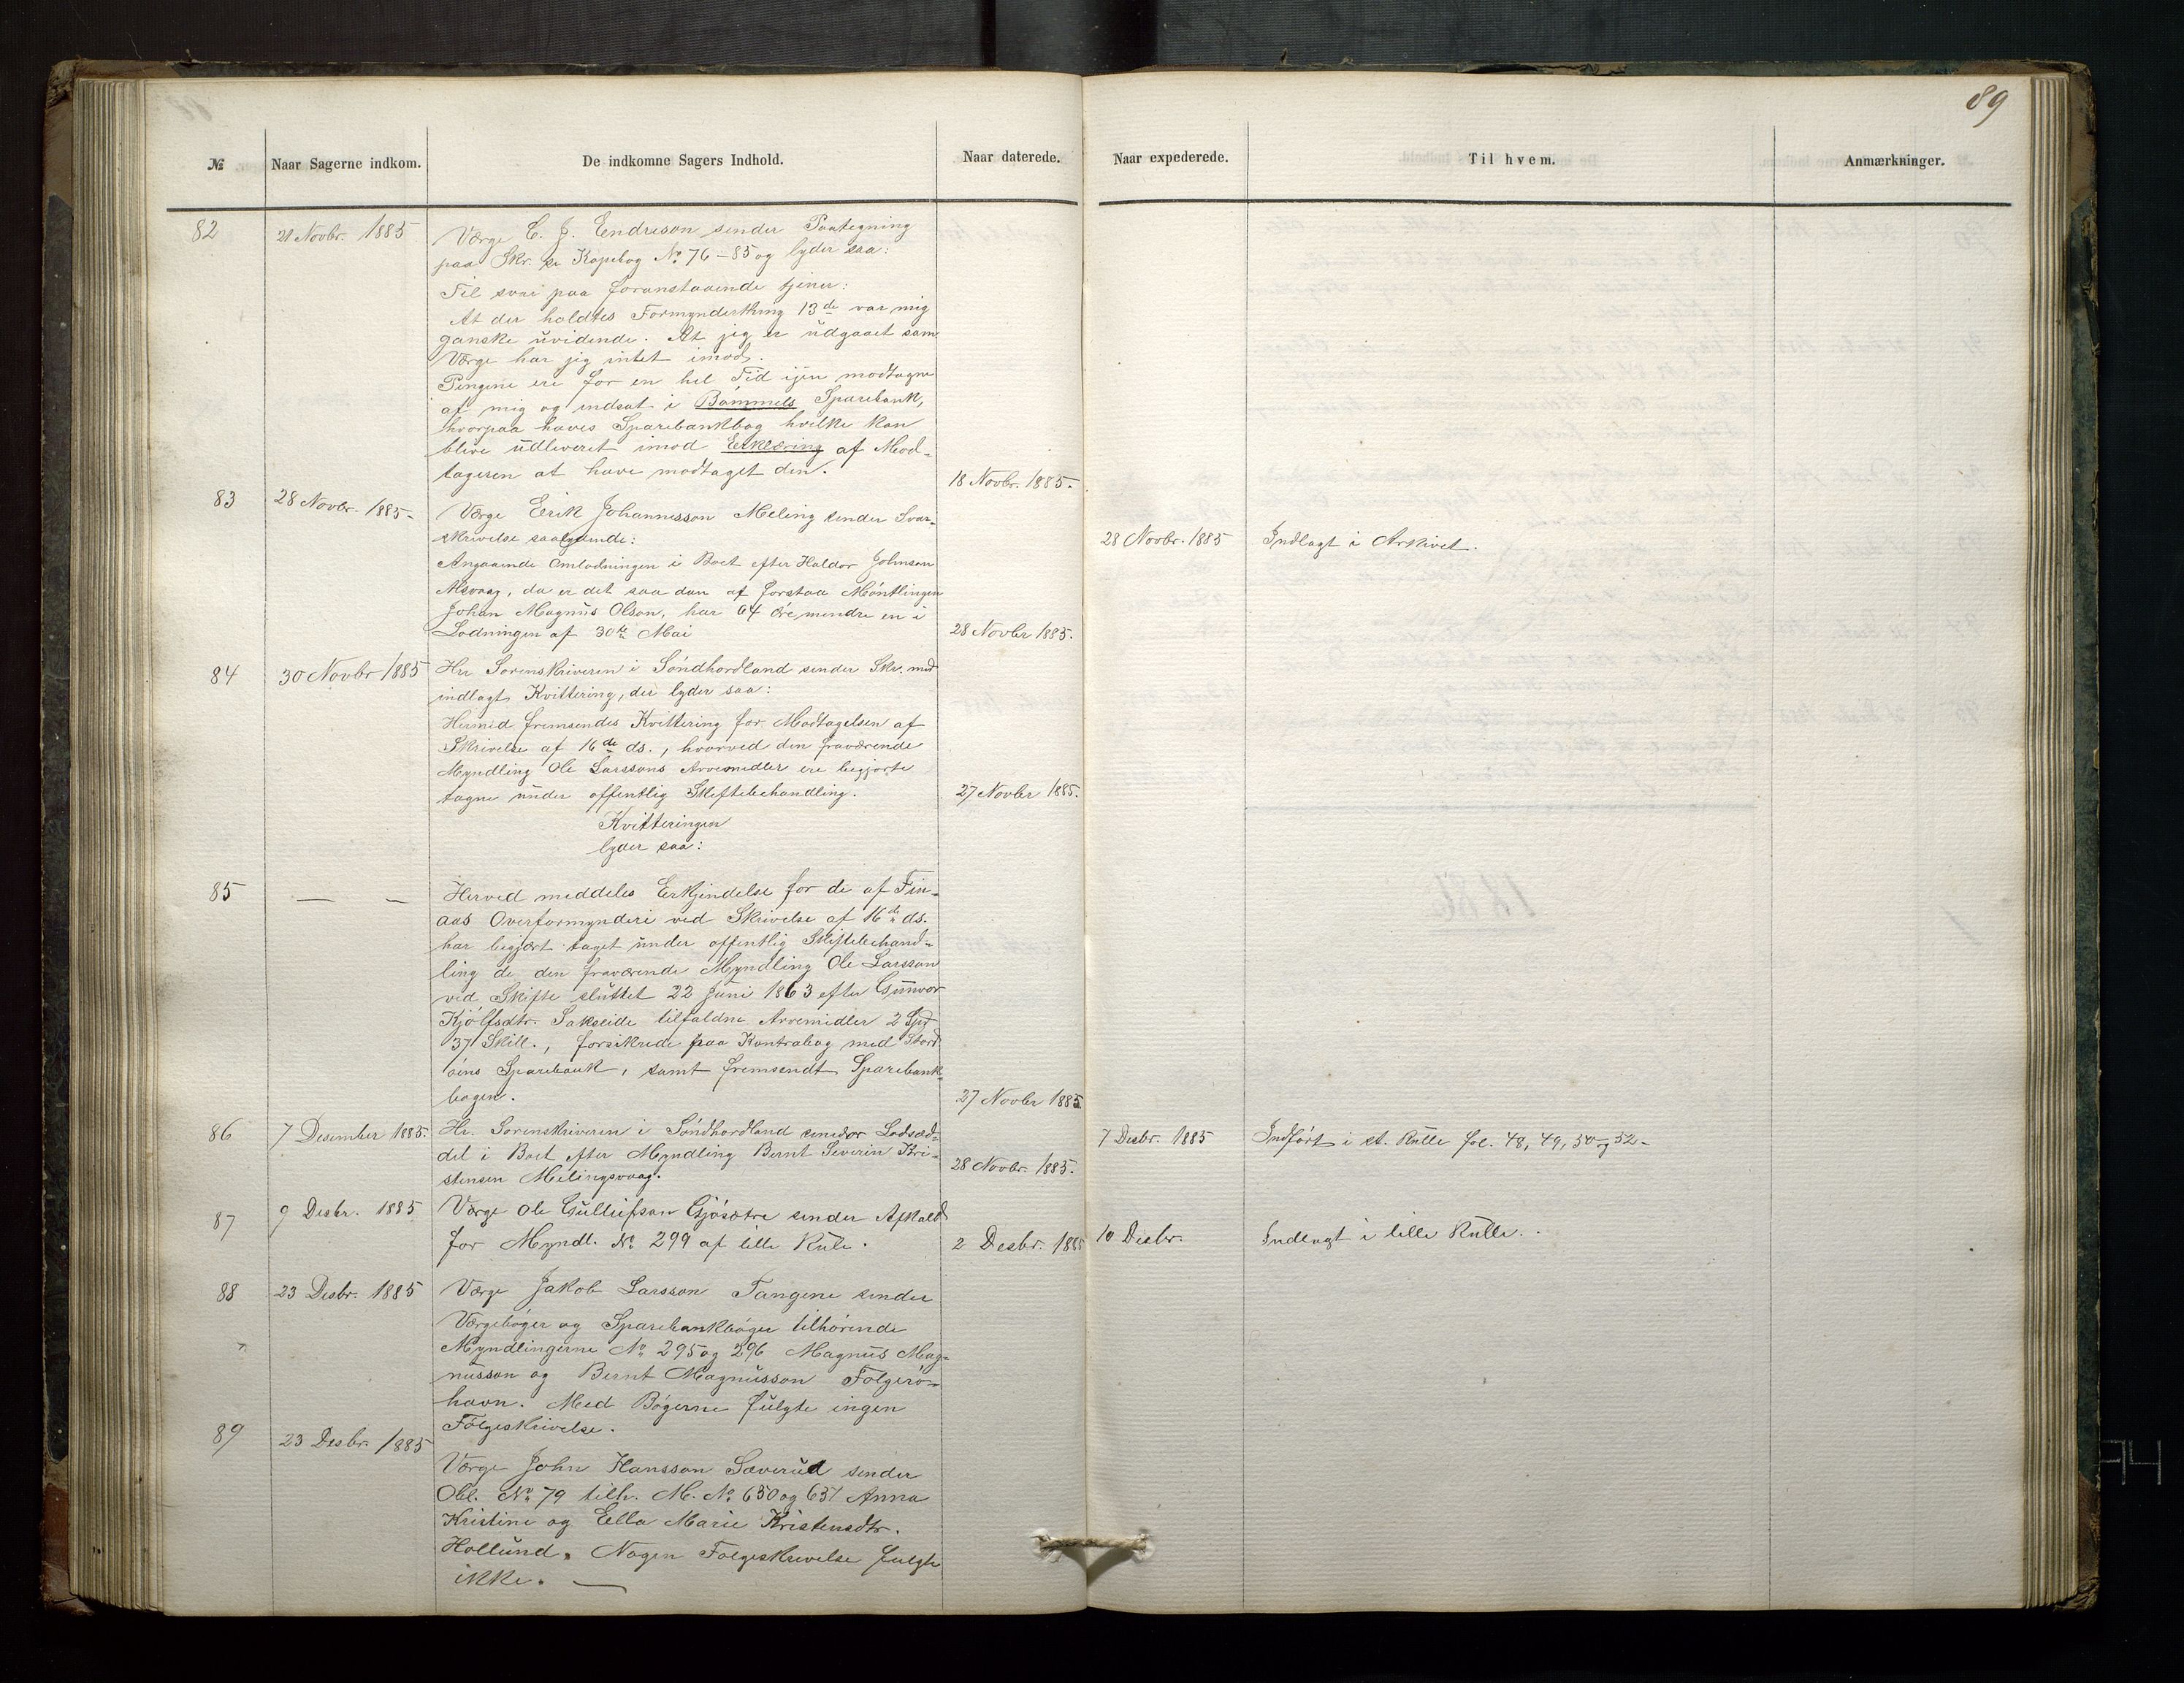 89
№ Naar Sagerne indkom. De indkomne Sagers Indhold. Naar daterede. Naar expederede. Til hvem. Anmærkninger.
82 21 Novbr. 1885 Værge C. J. Endreson sender Paategning
paa Skr. se Kopebog No 76-85 og lyder saa:
Til svar paa foranstaaende tjener:
At der holdtes Formynderthing 13de var mig
ganske uvidende. At jeg er udgaaet som
Værge har jeg intet imod.
Pengene ere for en hel Tid igjen modtagne
af mig og indsat i Bømmels Sparebank,
hvorpaa haves Sparebankbog hvilke kan
blive udleveret imod Erklæring af Mod-
tageren at have modtaget den. 18 Novbr. 1885.
83 28 Novbr. 1885- Værge Eerik Johannesson Meling sender Svar-
skrivelse saalydende: 28 Novbr. 1885 Indlagt i Arkivet.
Angaaende Omlodningen i Boet efter Haldor Johnson
Alsvaag, da er det saa dan at forstaa Møntlingen
Johan Magnus Olson, har 64 Øre mendre en i
Lodningen af 30te Mai 28 Novbr 1885.
84 30 Novbr 1885 Hr Sorenskriveren i Søndhordland sender Skr. med
indlagt Kvittering, der lyder saa:
Hermed fremsendes Kvittering for Modtagelsen af
Skrivelse af 16de ds., hvorved den fraværende
Myndling Ole Larssons Arvemidler ere begjærte
tagne under offentlig Skiftebehandling. 27 Novbr 1885.
Kvitteringen
lyder saa:
85 — — Herved meddeles Erkjendelse for de af Fin-
aas Overformynderi ved Skrivelse af 16de ds.
har begjært taget under offentlig Skiftebehand-
ling de den fraværende Myndling Ole Larsson
ved Skifte sluttet 22 Juni 1863 efter Gunvor
Kjølfsdtr. Sakseide tilfaldne Arvemidler 2 Spd
37 Skill., forsikrede paa Kontrabog med Stord
øens Sparebank, samt fremsendt Sparebank-
bogen. 27 Novbr 1885.
86 7 Desember 1885. Hr. Sorenskriveren i Søndhordland sender Lodsed-
del i Boet efter Myndling Bernt Severin Kri-
stensen Melingsvaag. 28 Novbr. 1885. 7 Desbr. 1885 Indført i st. Rulle fol. 48, 49, 50 og 52-
87 9 Desbr. 1885 Værge Ole Gulleifson Gjøsætre sender Afkald
for Myndl. No 299 af lille Rule. 2 Desbr. 1885 10 Desbr. Indlagt i lille Rulle.
88 23 Desbr. 1885 Værge Jakob Larsson Tangene sender
Værgebøger og Sparebankbøger tilhørende
Myndlingerne No 295 og 296 Magnus Mag-
nusson og Bernt Magnusson Folgerø-
havn. Med Bøgerne fulgte ingen
Følgeskrivelse.
89 23 Desbr. 1885 Værge John Hansson Sæverud sender
Obl. No 79 tilh. M. No 650 og 651 Anna
Kristine og Ella Marie Kristensdtr.
Hollund. Nogen Følgeskrivelse fulgte
ikke. —